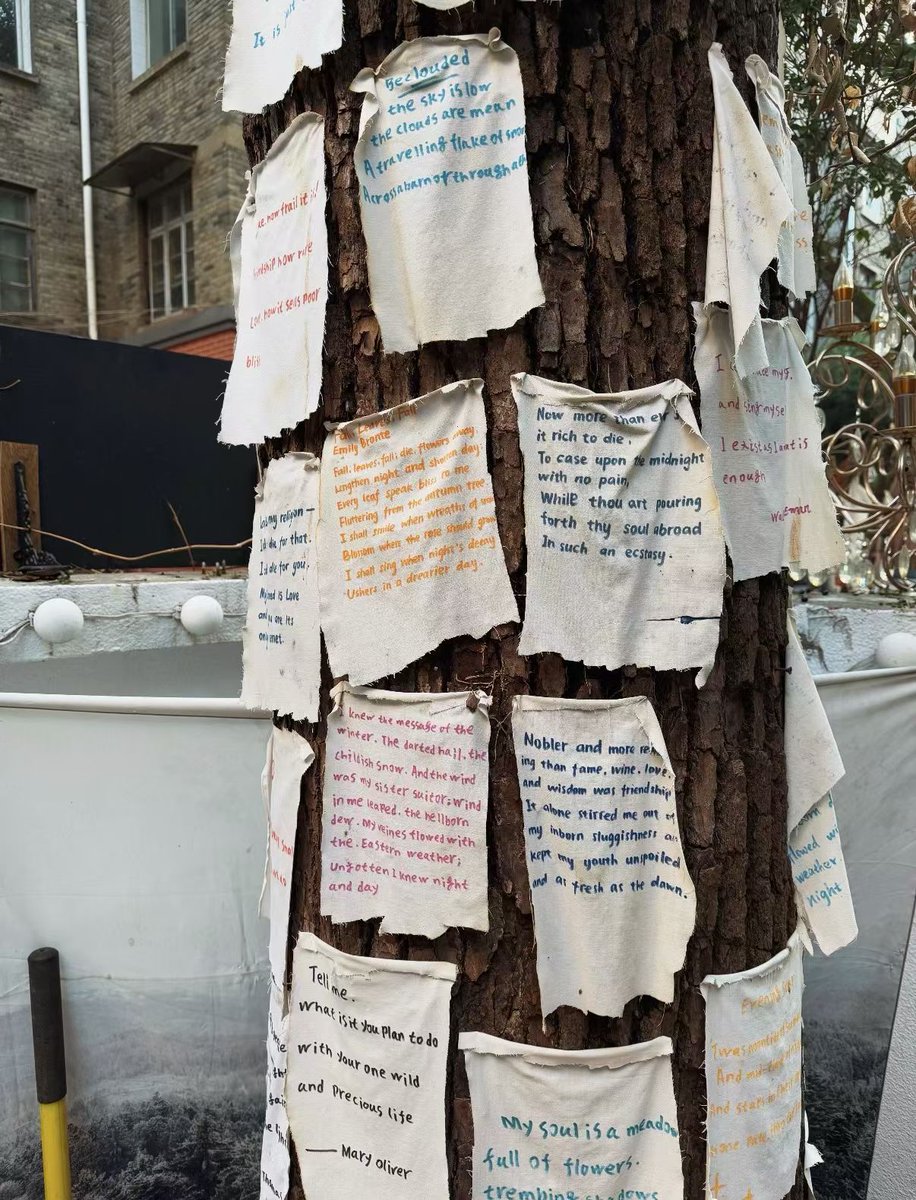 It is
Beclouded
the sky is low
the clouds are mean
A travelling flake of snow
Across a barn or through a
how frail it is!
how rare
how it sells poor
bliss
Fall, Leaves, Fall
Emily Bronte
Fall, leaves, fall; die, flowers, away
Lengthen night and shorten day
Every leaf speak bliss to me
Fluttering from the autumn tree
I shall smile when wreaths of snow
Blossom where the rose should grow
I shall sing when night's decay
Ushers in a drearier day.
Now more than ev
it rich to die.
To case upon the midnight
with no pain,
While thou art pouring
forth thy soul abroad
In such an ecstasy.
I myf.
and sing myse
I exist as I am that is
enough
my religion —
I'd die for that.
I'd die for you.
My creed is Love
and you are its
only tenet.
I knew the message of the
winter. The darted hail, the
childish snow. And the wind
was my sister suitor; wind
in me leaped, the hellborn
dew. My veines flowed with
the Eastern weather;
ungotten I knew night
and day
Nobler and more re
ing than fame, wine, love,
and wisdom was friendship
It alone stirred me out of
my inborn sluggishness a
kept my youth unspoiled
and as fresh as the dawn.
flowed wi
weather
night
Tell me.
What is it you plan to do
with your one wild
and precious life
— Mary Oliver
My soul is a meadow
full of flowers.
trembing shadows
And mid-
And stars in the